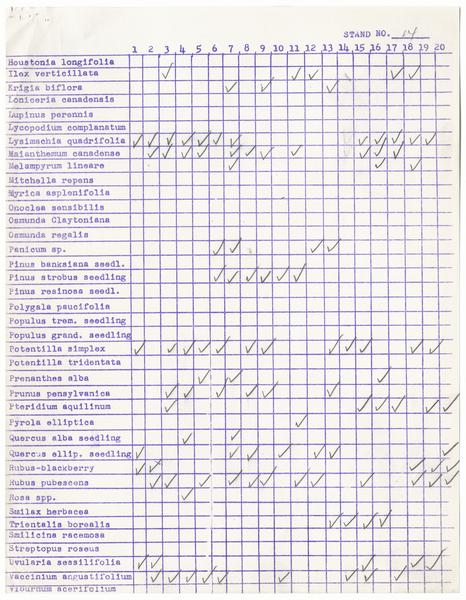 STAND NO. 14
1 2 3 4 5 6 7 8 9 10 11 12 13 14 15 16 17 18 19 20
Houstonia longifolia
Ilex verticillata
Krigia biflora
Loniceria canadensis
Lupinus perennis
Lycopodium complanatum
Lysimachia quadrifolia
Maianthemum canadense
Melampyrum lineare
Mitchella repens
Myrica asplenifolia
Onoclea sensibilis
Osmunda Claytoniana
Osmunda regalis
Panicum sp.
Pinus banksiana seedl.
Pinus strobus seedling
Pinus resinosa seedl.
Polygala paucifolia
Populus trem. seedling
Populus grand. seedling
Potentilla simplex
Potentilla tridentata
Prenanthes alba
Prunus pensylvanica
Pteridium aquilinum
Pyrola elliptica
Quercus alba seedling
Quercus ellip. seedling
Rubus-blackberry
Rubus pubescens
Rosa spp.
Smilax herbacea
Trientalis borealis
Smilicina racemosa
Streptopus roseus
Uvularia sessilifolia
Vaccinium angustifolium
Viburnum acerifolium